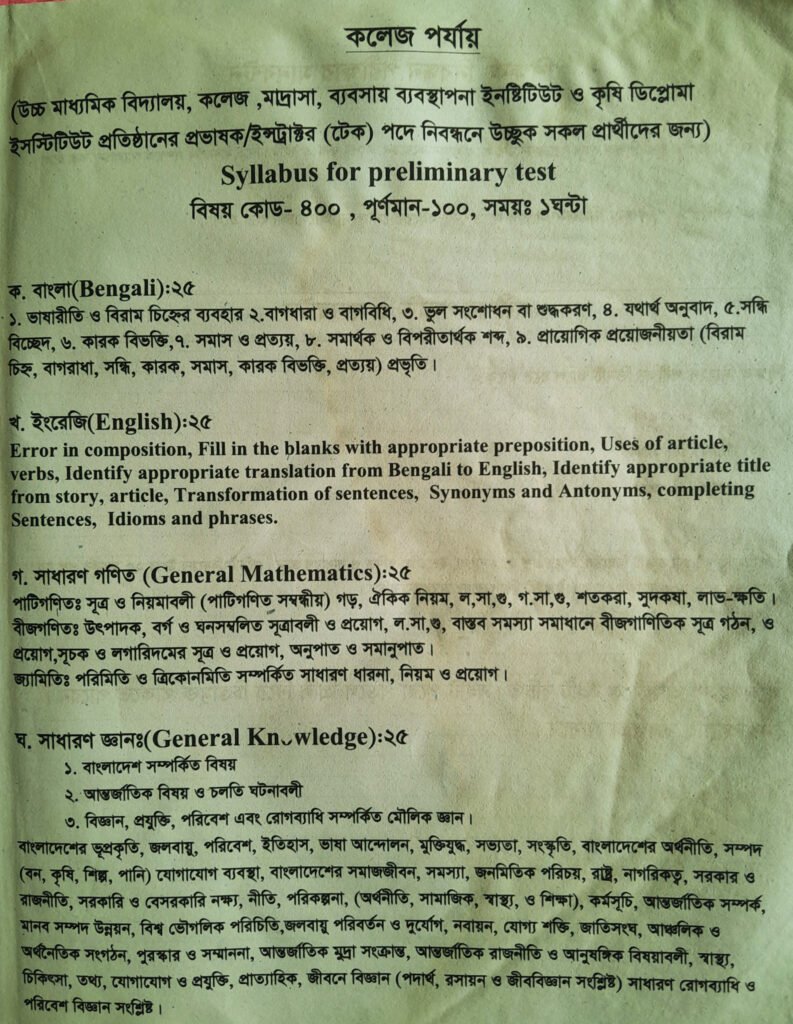 কলেজ পর্যায়
(উচ্চ মাধ্যমিক বিদ্যালয়, কলেজ ,মাদ্রাসা, ব্যবসায় ব্যবস্থাপনা ইনষ্টিটিউট ও কৃষি ডিপ্লোমা
ইসস্টিটিউট প্রতিষ্ঠানের প্রভাষক/ইন্সট্রাক্টর (টেক) পদে নিবন্ধনে উচ্ছুক সকল প্রার্থীদের জন্য)
Syllabus for preliminary test
বিষয় কোড- ৪০০ , পূর্ণমান-১০০, সময়ঃ ১ঘন্টা
ক. বাংলা(Bengali):২৫
১. ভাষারীতি ও বিরাম চিহ্নের ব্যবহার ২.বাগধারা ও বাগবিধি, ৩. ভুল সংশোধন বা শুদ্ধকরণ, ৪. যথার্থ অনুবাদ, ৫.সন্ধি
বিচ্ছেদ, ৬. কারক বিভক্তি,৭. সমাস ও প্রত্যয়, ৮. সমার্থক ও বিপরীতার্থক শব্দ, ৯. প্রায়োগিক প্রয়োজনীয়তা (বিরাম
চিহ্ন, বাগরাধা, সন্ধি, কারক, সমাস, কারক বিভক্তি, প্রত্যয়) প্রভৃতি।
খ. ইংরেজি(English):২৫
Error in composition, Fill in the blanks with appropriate preposition, Uses of article,
verbs, Identify appropriate translation from Bengali to English, Identify appropriate title
from story, article, Transformation of sentences, Synonyms and Antonyms, completing
Sentences, Idioms and phrases.
গ. সাধারণ গণিত (General Mathematics):২৫
পাটিগণিতঃ সূত্র ও নিয়মাবলী (পাটিগণিত সম্বন্ধীয়) গড়, ঐকিক নিয়ম, ল,সা,গু, গ.সা,গু, শতকরা, সুদকষা, লাভ-ক্ষতি।
বীজগণিতঃ উৎপাদক, বর্গ ও ঘনসম্বলিত সূত্রাবলী ও প্রয়োগ, ল.সা,গু, বাস্তব সমস্যা সমাধানে বীজগাণিতিক সূত্র গঠন, ও
প্রয়োগ,সূচক ও লগারিদমের সূত্র ও প্রয়োগ, অনুপাত ও সমানুপাত।
জ্যামিতিঃ পরিমিতি ও ত্রিকোনমিতি সম্পর্কিত সাধারণ ধারনা, নিয়ম ও প্রয়োগ।
ঘ. সাধারণ জ্ঞানঃ(General Knowledge):২৫
১. বাংলাদেশ সম্পর্কিত বিষয়
২. আন্তর্জাতিক বিষয় ও চলতি ঘটনাবলী
৩. বিজ্ঞান, প্রযুক্তি, পরিবেশ এবং রোগব্যাধি সম্পর্কিত মৌলিক জ্ঞান।
বাংলাদেশের ভূপ্রকৃতি, জলবায়ু, পরিবেশ, ইতিহাস, ভাষা আন্দোলন, মুক্তিযুদ্ধ, সভ্যতা, সংস্কৃতি, বাংলাদেশের অর্থনীতি, সম্পদ
(বন, কৃষি, শিল্প, পানি) যোগাযোগ ব্যবস্থা, বাংলাদেশের সমাজজীবন, সমস্যা, জনমিতিক পরিচয়, রাষ্ট্র, নাগরিকত্ব, সরকার ও
রাজনীতি, সরকারি ও বেসরকারি নক্ষ্য, নীতি, পরিকল্পনা, (অর্থনীতি, সামাজিক, স্বাস্থ্য, ও শিক্ষা), কর্মসূচি, আন্তর্জাতিক সম্পর্ক,
মানব সম্পদ উন্নয়ন, বিশ্ব ভৌগলিক পরিচিতি,জলবায়ু পরিবর্তন ও দুর্যোগ, নবায়ন, যোগ্য শক্তি, জাতিসংঘ, আঞ্চলিক ও
অর্থনৈতিক সংগঠন, পুরস্কার ও সম্মাননা, আন্তর্জাতিক মুদ্রা সংক্রান্ত, আন্তর্জাতিক রাজনীতি ও আনুষঙ্গিক বিষয়াবলী, স্বাস্থ্য,
চিকিৎসা, তথ্য, যোগাযোগ ও প্রযুক্তি, প্রাত্যাহিক, জীবনে বিজ্ঞান (পদার্থ, রসায়ন ও জীববিজ্ঞান সংশ্লিষ্ট) সাধারণ রোগব্যাধি ও
পরিবেশ বিজ্ঞান সংশ্লিষ্ট।